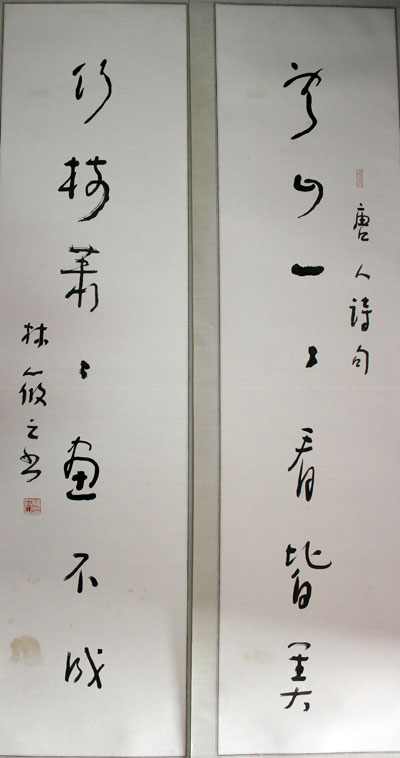 唐人詩句
雲山一〻看皆美
竹樹蕭〻畫不成
林筱之書